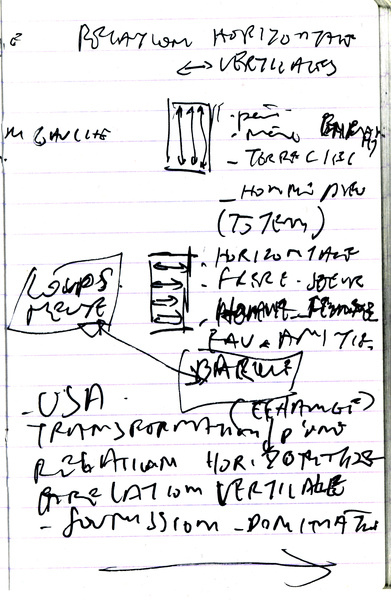 RELATION HORIZONTALE
↔ VERTICALES
GAUCHE
- TERRE CIEL
- HOMME DIEU
(TOTEM)
- HORIZONTALE
- FRERE - SOEUR
- HOMME - FEMME
EAU AMITIE
LOUPS
MEUTE
BARQUE
(ECHANGE)
- USA
TRANSFORMATION D'UNE
RELATION HORIZONTALE
RELATION VERTICALE
- SOUMISSION - DOMINATION